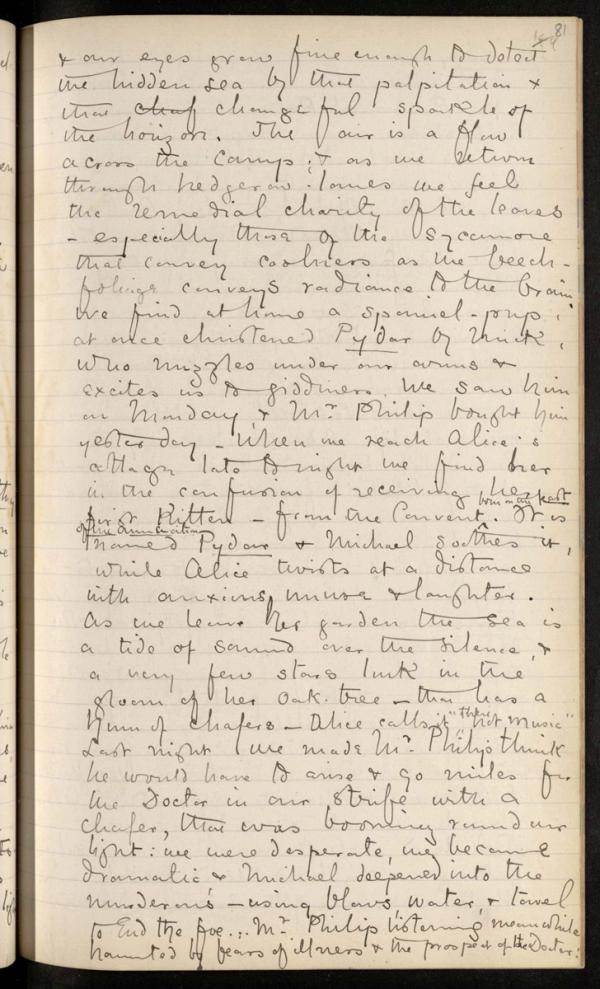 81
& our eyes grow fine enough to detect
the hidden sea by that palpitation &
that chaf changeful sparkle of
the horizon. The air is a flow
across the Camp; & as we return
through hedgerow-lanes we feel
the remedial charity of the leaves
- especially those of the Sycamore
that convey coolness as the beech-
foliage conveys radiance to the brain
we find at home a spaniel-pup,
at once christened Pydar by Mick,
who nuzzles under our arms &
excites us to giddiness. We saw him
on Monday, & Mr. Philip bought him
yesterday - When we reach Alice's
cottage late tonight we find her
in the confusion of receiving her
born on the feast
first Kitten - from the Convent. It is
of the Annunciation
named Pydar & Michael soothes it,
while Alice twists at a distance
with anxious, unuse & laughter.
As we leave her garden the sea is
a tide of sound over the silence, &
a very few stars lurk in the
gloom of her oak-tree - that has a
hum of chafers - Alice calls it "their hot music"
Last night we made Mr. Philips think
he would have to arise & go miles for
the Doctor in our strife with a
chafer, that was booming round our
light: we were desperate, we became
dramatic & Michael deepened into the
murderous - using blows water, & towel
to End the foe... Mr. Philip listening meanwhile
haunted by fears of illness & the prospect of the Doctor: